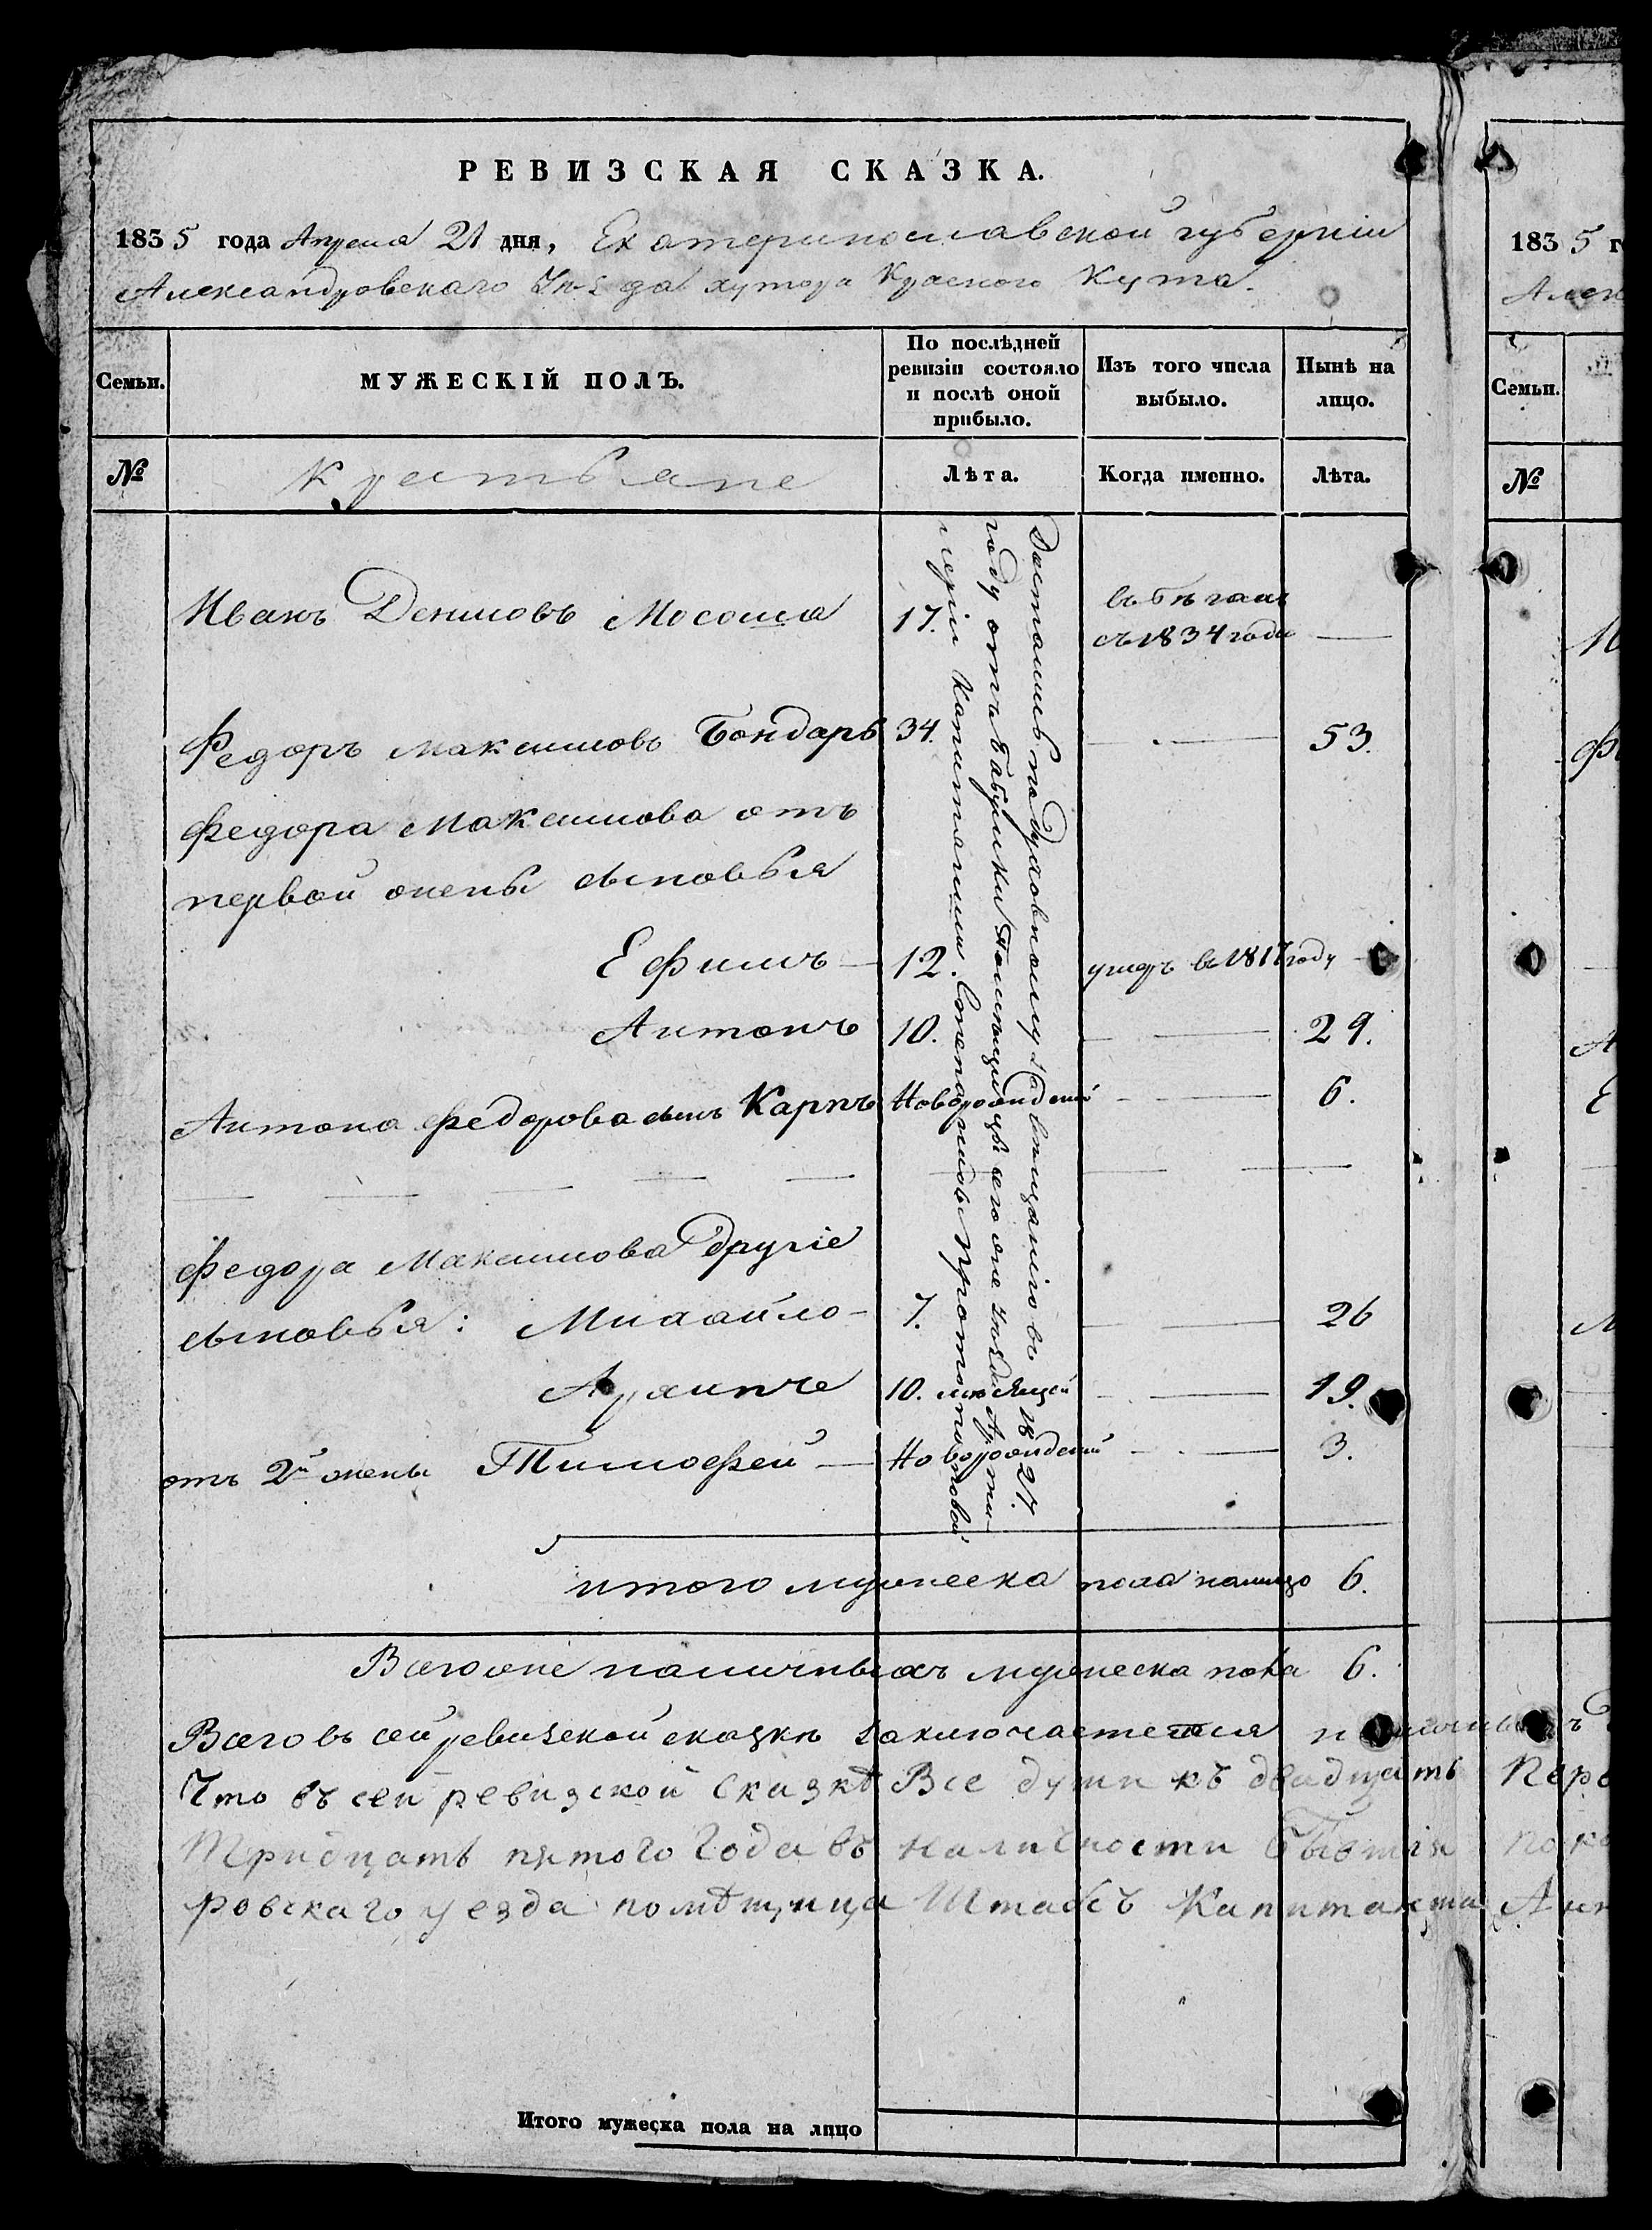 РЕВИЗСКАЯ СКАЗКА.
1835 года Апреля 21 дня, Екатеринославской губернiи
Александровскаго Уѣзда хутора Красного Кута.
Семьи.
МУЖЕСКIЙ ПОЛЪ.
По послѣдней ревизiи состояло и послѣ оной прибыло.
Изъ того числа выбыло.
Нынѣ на лицо.
№
Крестьяне
Лѣта.
Когда именно.
Лѣта.
Иванъ Денисовъ 17. въ бѣгахъ съ 1834 года —
Федоръ Максимовъ Бондарь 34. — 53.
Федора Максимова отъ
первой жены сыновья
Ефимъ — 12. умеръ въ 1817 году —
Антонъ 10. — 29.
Антона Федорова сынъ Карпъ Новорожденый — 6.
Федора Максимова другiе
сыновья: Михайло — 7. — 26
Архипъ 10. мѣсяцей — 19.
отъ 2й жены Тимофей — Новорожденый — 3.
Достались по Духовному завещанiю въ 1827.
году отъ Бабушки Помѣщицы сего же Уѣзда Арти-
лерiи Капитанши Степаниды Протопоповой
итого мужеска пола налицо 6.
Всего же наличныхъ мужеска пола 6.
Всего въ сей ревизской сказкѣ заключается
Что въ сей ревизской Сказкѣ Все души къ двадцать
Тридцать пятого Года въ наличности бытiя
ровскаго уезда помѣщица Штабсъ Капитанша
Итого мужеска пола на лицо
1835 г
Семьи.
№